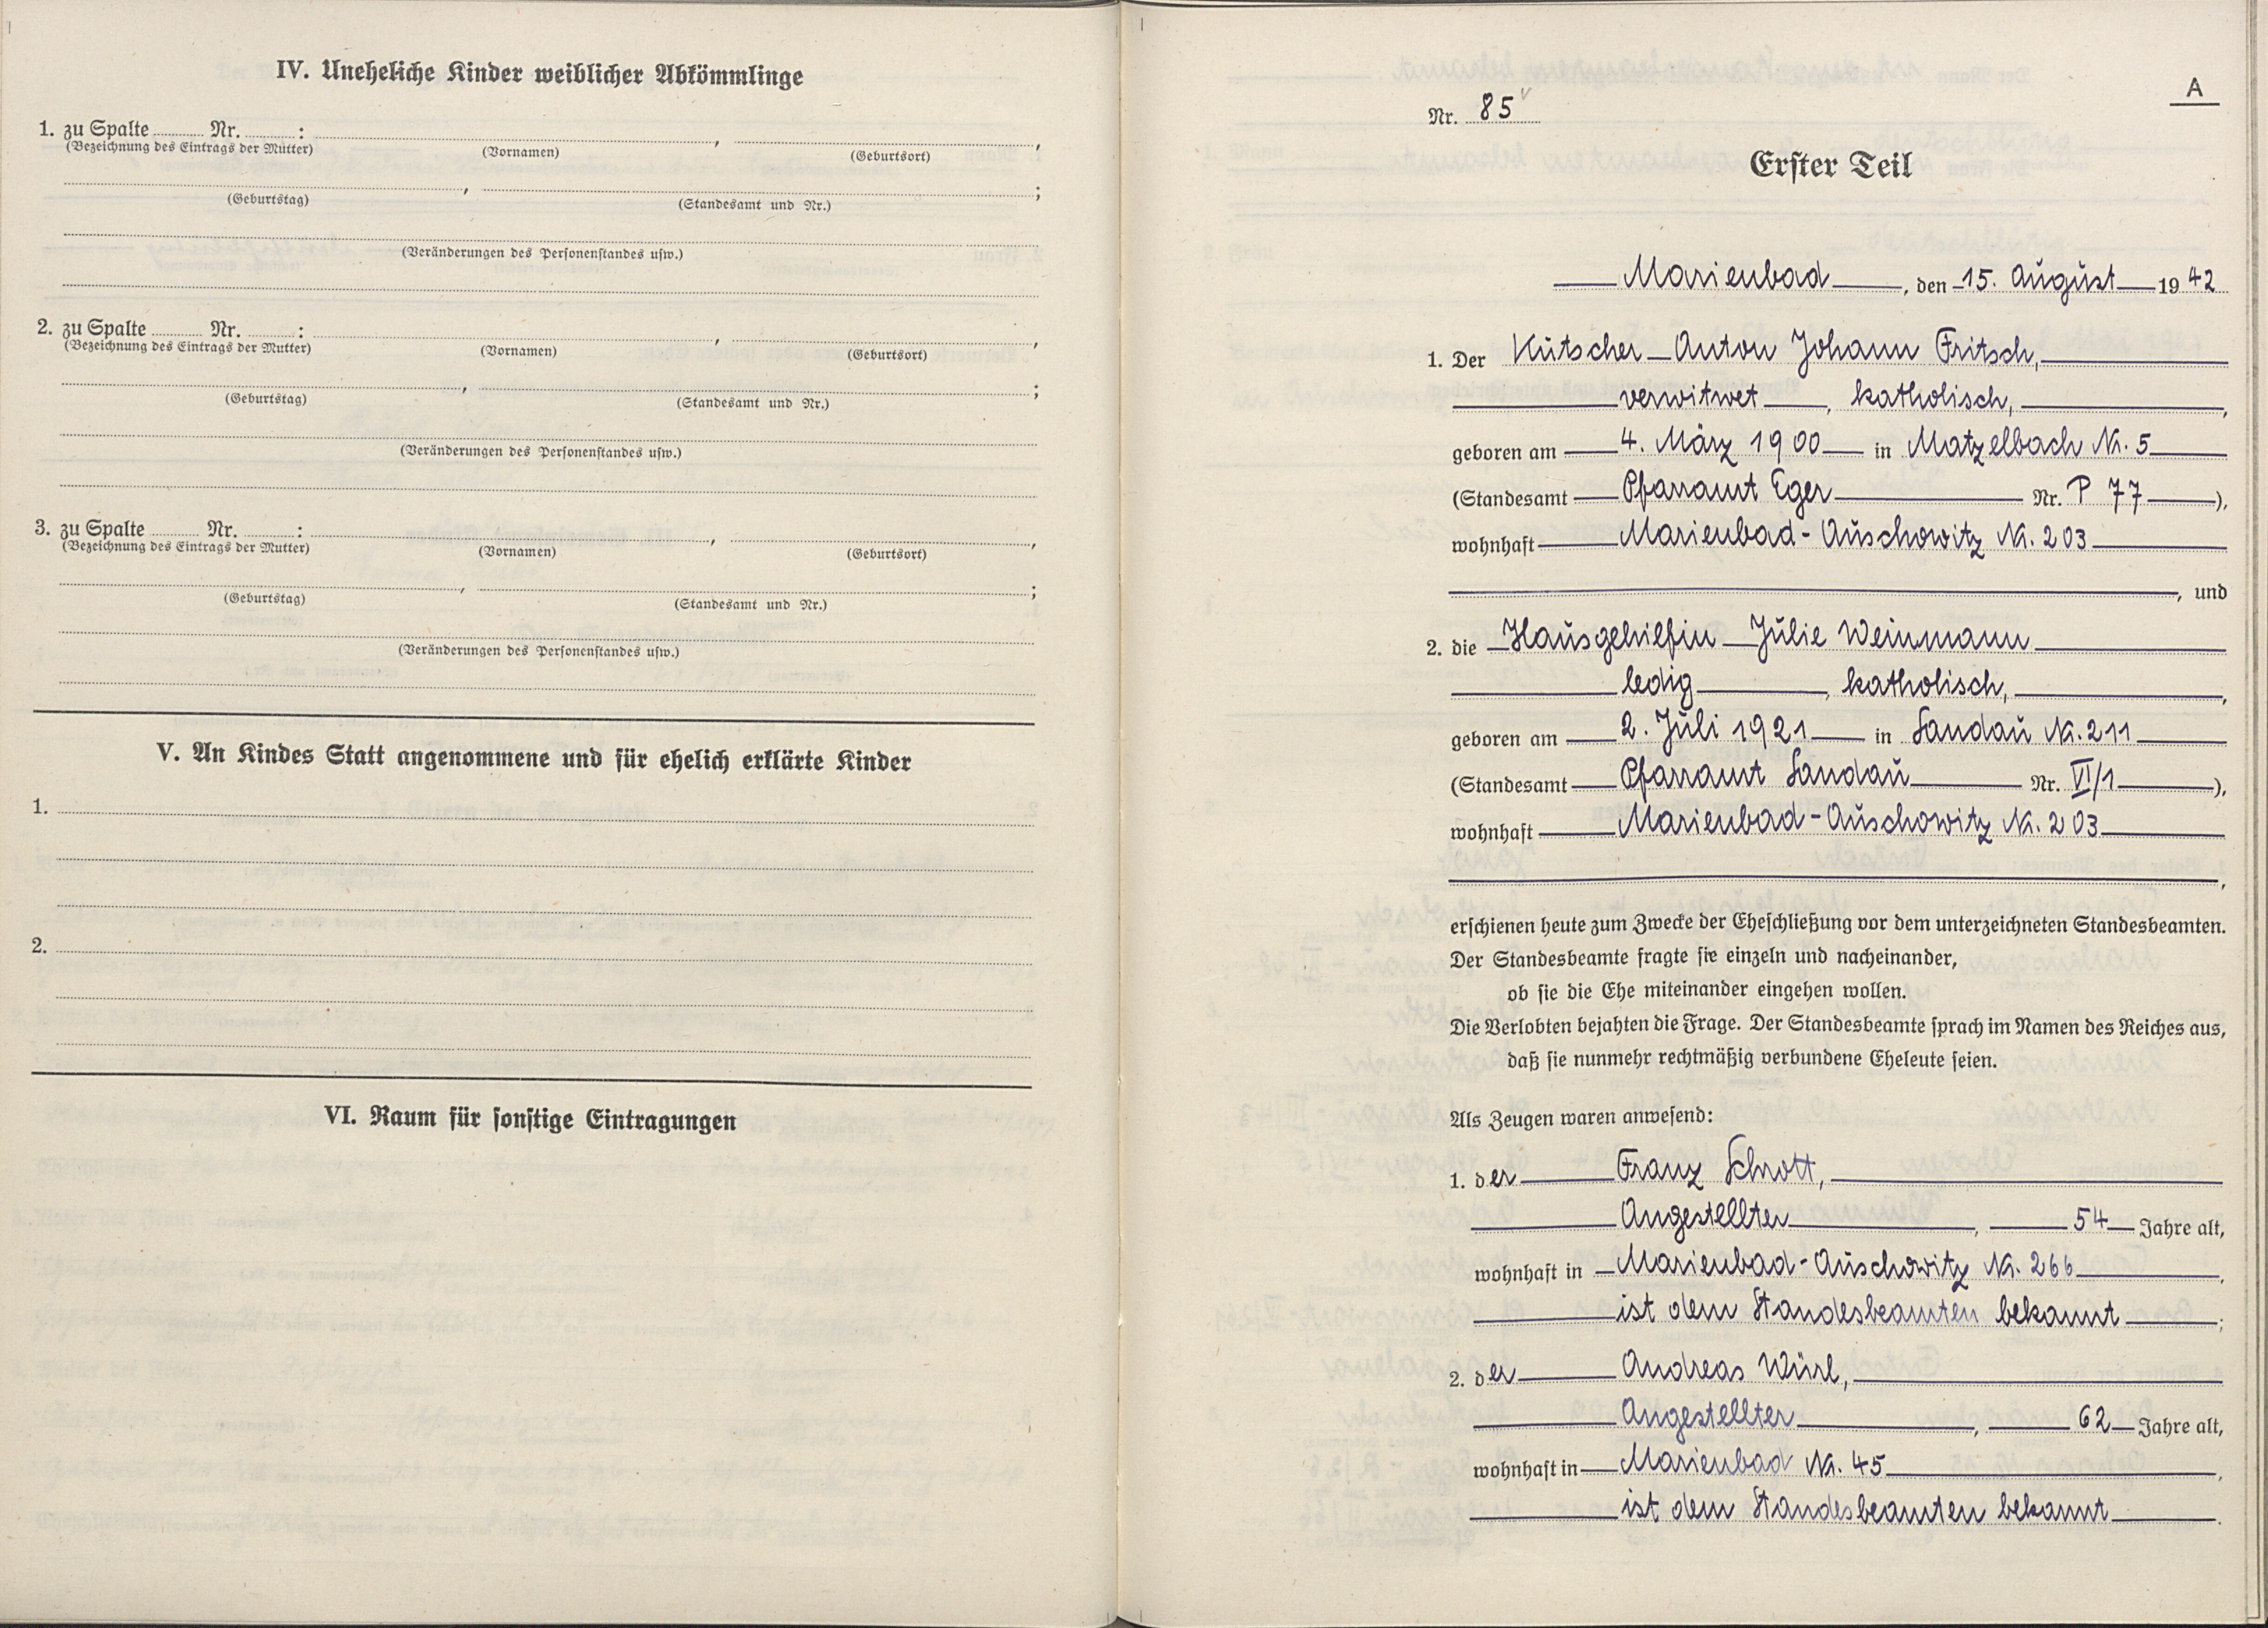 IV. Uneheliche Kinder weiblicher Abkömmlinge
1. zu Spalte ........ Nr. ........ : ........ , ........ ,
(Bezeichnung des Eintrags der Mutter) (Vornamen) (Geburtsort)
........ , ........ ;
(Geburtstag) (Standesamt und Nr.)
(Veränderungen des Personenstandes usw.)
2. zu Spalte ........ Nr. ........ : ........ , ........ ,
(Bezeichnung des Eintrags der Mutter) (Vornamen) (Geburtsort)
........ , ........ ;
(Geburtstag) (Standesamt und Nr.)
(Veränderungen des Personenstandes usw.)
3. zu Spalte ........ Nr. ........ : ........ , ........ ,
(Bezeichnung des Eintrags der Mutter) (Vornamen) (Geburtsort)
........ , ........ ;
(Geburtstag) (Standesamt und Nr.)
(Veränderungen des Personenstandes usw.)
V. An Kindes Statt angenommene und für ehelich erklärte Kinder
1.
2.
VI. Raum für sonstige Eintragungen
A
Nr. 85
Erster Teil
Marienbad, den 15. August 1942
1. Der Kutscher Anton Johann Fritsch,
verwitwet, katholisch,
geboren am 4. März 1900 in Matzelbach Nr. 5
(Standesamt Pfarramt Eger Nr. P 77),
wohnhaft Marienbad-Auschowitz Nr. 203
, und
2. die Hausgehilfin Julie Weinmann
ledig, katholisch,
geboren am 2. Juli 1921 in Sandau Nr. 211
(Standesamt Pfarramt Sandau Nr. VI/1),
wohnhaft Marienbad-Auschowitz Nr. 203
,
erschienen heute zum Zwecke der Eheschließung vor dem unterzeichneten Standesbeamten.
Der Standesbeamte fragte sie einzeln und nacheinander,
ob sie die Ehe miteinander eingehen wollen.
Die Verlobten bejahten die Frage. Der Standesbeamte sprach im Namen des Reiches aus,
daß sie nunmehr rechtmäßig verbundene Eheleute seien.
Als Zeugen waren anwesend:
1. der Franz Schrott,
Angestellter, 54 Jahre alt,
wohnhaft in Marienbad-Auschowitz Nr. 266,
ist dem Standesbeamten bekannt;
2. der Andreas Würl,
Angestellter, 62 Jahre alt,
wohnhaft in Marienbad Nr. 45,
ist dem Standesbeamten bekannt.